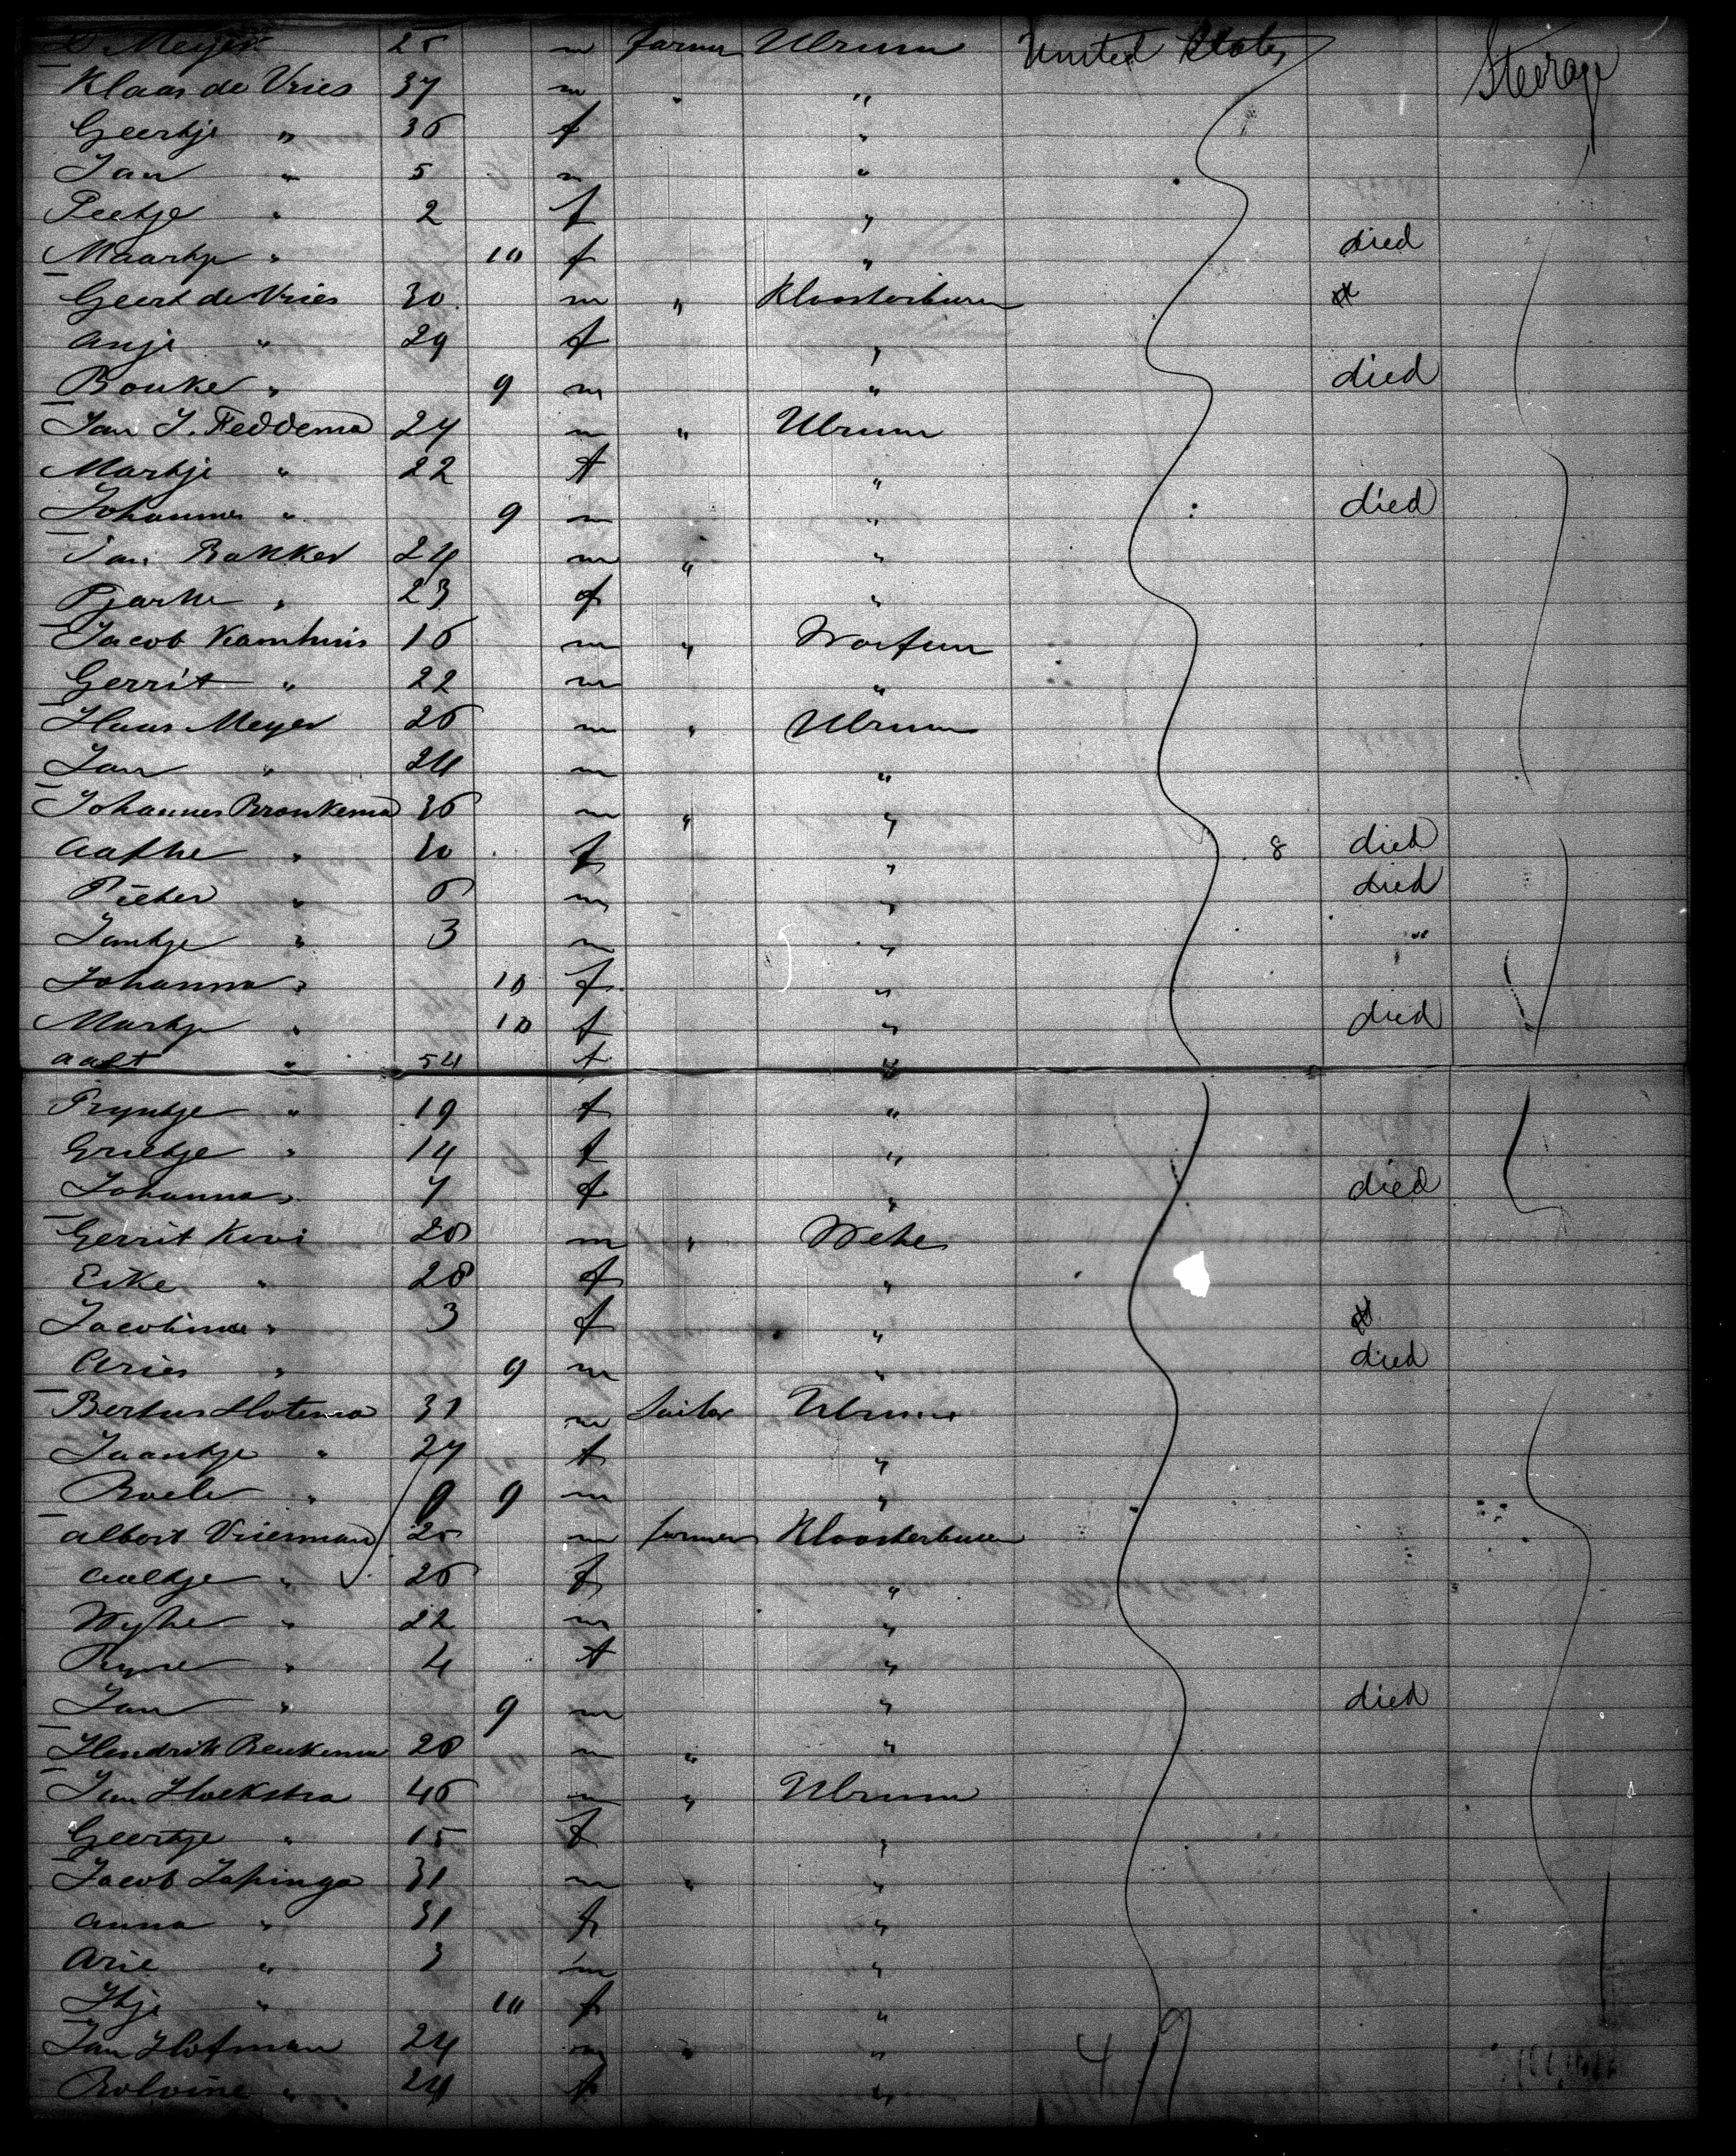 D Meyer 25 m farmer Ulrum United States Steerage
Klaas de Vries 37 m " "
Geertje " 36 f "
Jan " 5 m "
Peetje " 2 f "
Maartje " 10 f " died
Geert de Vries 30 m " Kloosterburen
Anje " 29 f "
Bouke " 9 m " died
Jan J. Feddema 24 m " Ulrum
Martje " 22 f "
Johannes " 9 m " died
Jan Bakker 24 m " "
" 23 f "
Jacob Kamhuis 16 m " Warfum
Gerrit " 22 m "
Klaas Meyer 26 m " Ulrum
Jan " 24 m "
Johannes Bronkema 36 m " "
Aafke " 30 f " 8 died
Pieter " 6 m " died
Jantje " 3 m " "
Johanna " 10 f "
Martje " 10 f " died
Aalt " 54 f "
Pryntje " 19 f "
Grietje " 14 f "
Johanna " 7 f " died
Gerrit 28 m " Wehe
Eike " 28 f "
Jacobina " 3 f "
Aries " 9 m " died
Bertus 31 m Ulrum
Jaantje " 27 f "
Roele " 9 m "
Albert Vrierman 25 m farmer Kloosterburen
Aaltje " 26 f "
Wyke " 22 m "
" 4 f "
Jan " 9 m " died
Hendrik Beukema 28 m " "
Jan Hoekstra 46 m " Ulrum
Geertje " 15 f "
Jacob 31 m " "
Anna " 31 f "
Arie " 3 m "
" 10 f "
Jan Hofman 24 m " " 49
" 24 f "